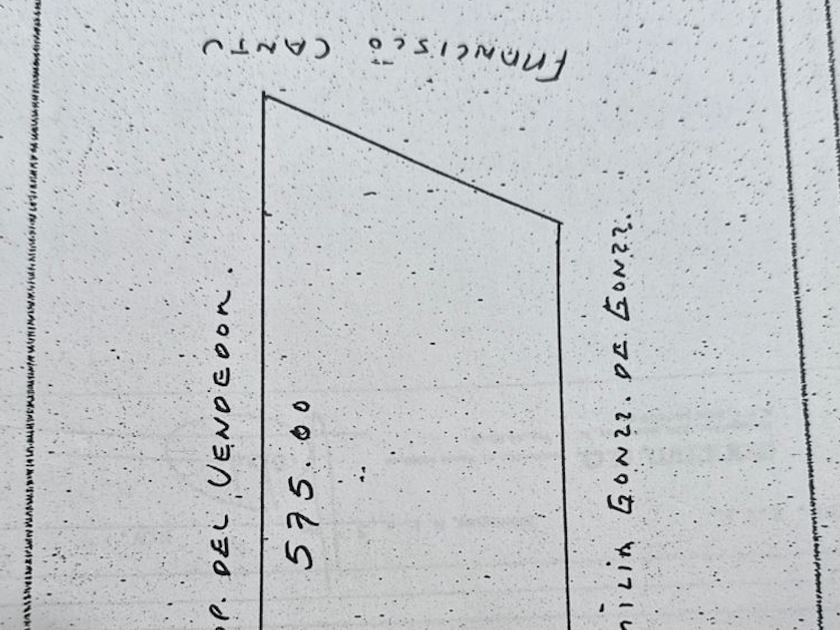 FRANCISCO CANTU
P. DEL VENDEDOR.
575.00
MILIA GONZZ. DE GONZZ.